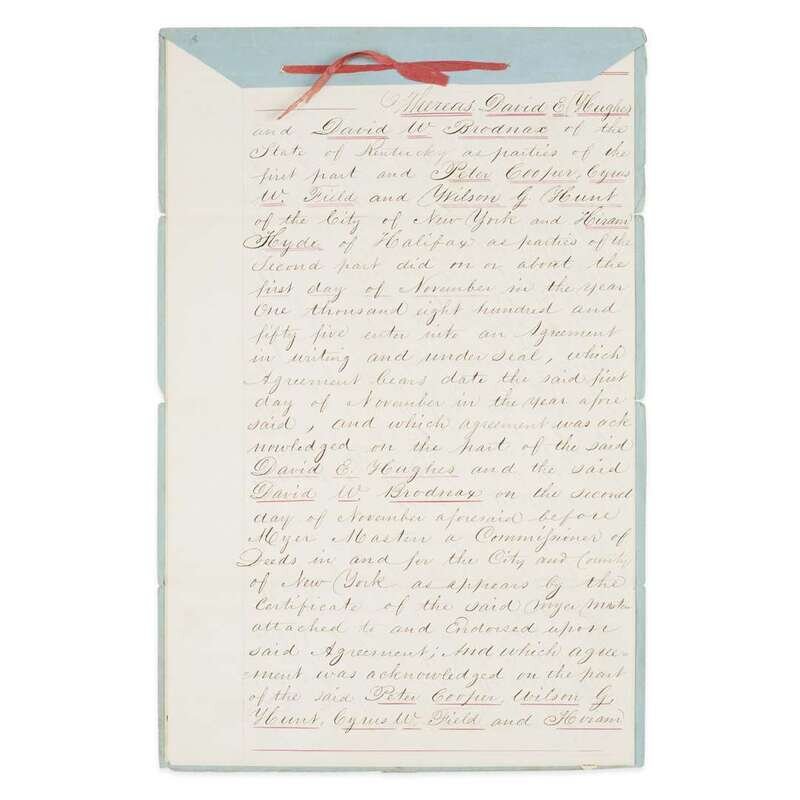 Whereas David E. Hughes
and David W. Brodnax of the
State of Kentucky as parties of the
first part and Peter Cooper, Cyrus
W. Field and Wilson G. Hunt
of the City of New York and Hiram
Hyde of Halifax as parties of the
Second part did on or about the
first day of November in the year
One thousand eight hundred and
fifty five enter into an Agreement
in writing and under seal, which
Agreement bears date the said first
day of November in the year afore
said, and which agreement was ack
nowledged on the part of the said
David E. Hughes and the said
David W. Brodnax on the second
day of November aforesaid before
Myer Masten a Commissioner of
Deeds in and for the City and County
of New York as appears by the
Certificate of the said Myer Masten
attached to and Endorsed upon
said Agreement; And which agree=
=ment was acknowledged on the part
of the said Peter Cooper, Wilson G.
Hunt, Cyrus W. Field and Hiram